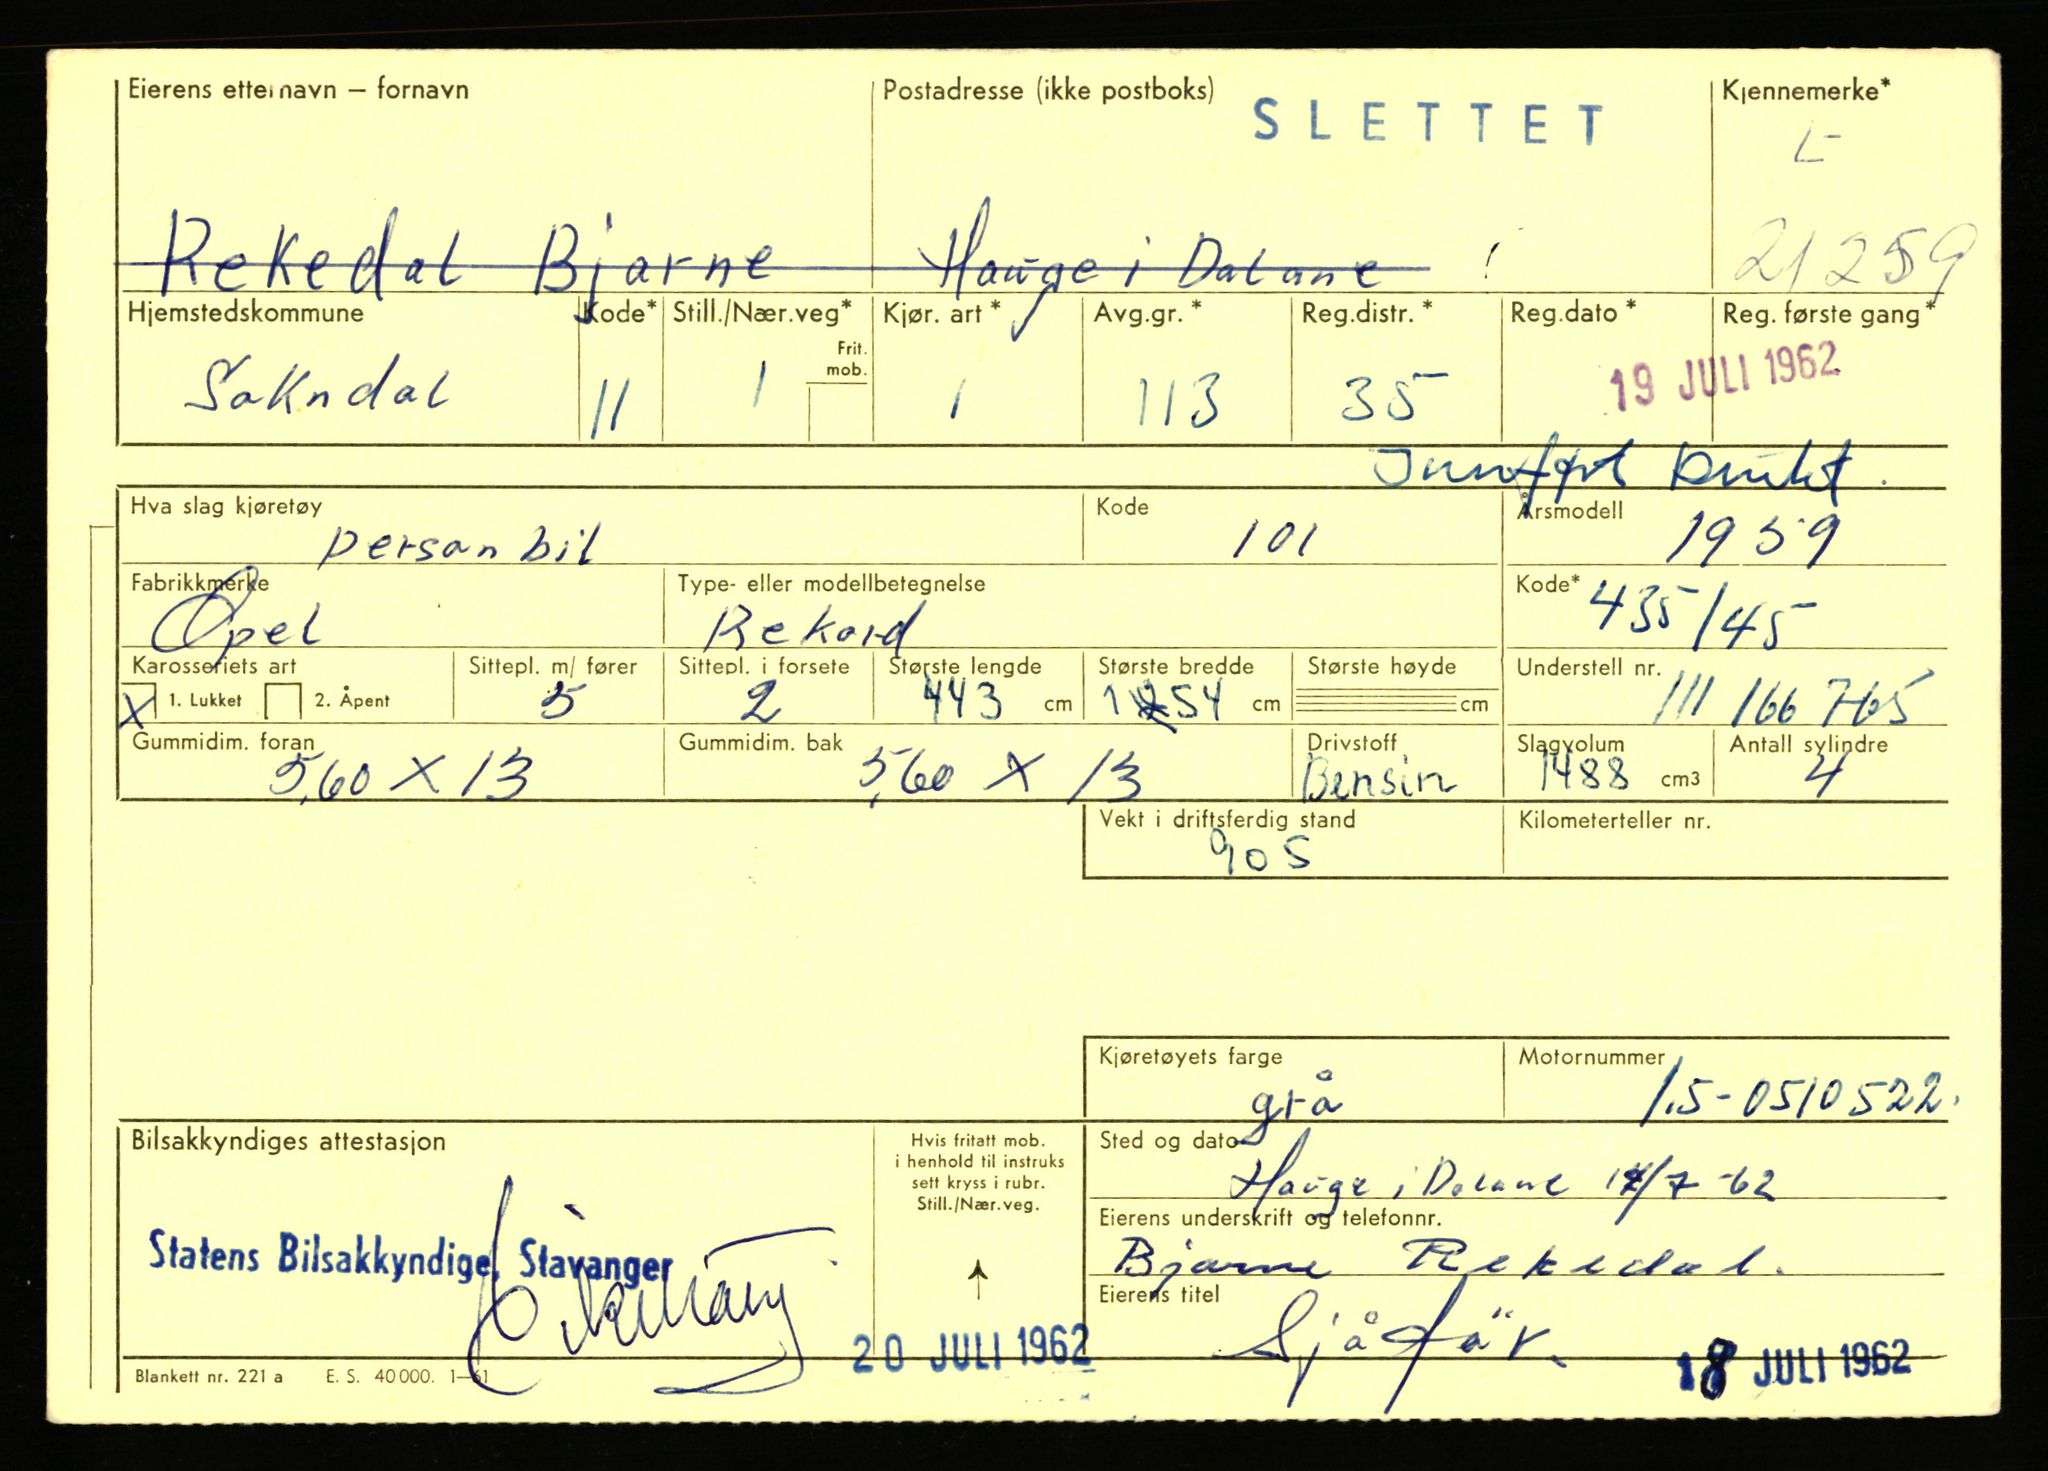 Eierens etternavn – fornavn Postadresse (ikke postboks) SLETTET Kjennemerke*
L-
Rekedal Bjarne Hauge i Dalane 21259
Hjemstedskommune Kode* Still./Nær.veg* Kjør. art* Avg.gr.* Reg.distr.* Reg.dato* Reg. første gang*
Frit. mob.
Sokndal 11 1 1 113 35 19 JULI 1962
Innført brukt.
Hva slag kjøretøy Kode Årsmodell
personbil 101 1959
Fabrikkmerke Type- eller modellbetegnelse Kode*
Opel Rekord 435/45
Karosseriets art Sittepl. m/ fører Sittepl. i forsete Største lengde Største bredde Største høyde Understell nr.
X 1. Lukket 2. Åpent 5 2 443 cm 1 54 cm cm 111 166 765
Gummidim. foran Gummidim. bak Drivstoff Slagvolum Antall sylindre
5,60 X 13 5,60 X 13 Bensin 1488 cm3 4
Vekt i driftsferdig stand Kilometerteller nr.
905
Kjøretøyets farge Motornummer
grå 1.5-0510522.
Bilsakkyndiges attestasjon
Hvis fritatt mob.
i henhold til instruks
sett kryss i rubr.
Still./Nær.veg.
Sted og dato
Hauge i Dalane 17/7-62
Eierens underskrift og telefonnr.
Statens Bilsakkyndige, Stavanger
Bjarne Rekedal.
Eierens titel
Sjåfør.
20 JULI 1962 18 JULI 1962
Blankett nr. 221 a E. S. 40 000. 1–61